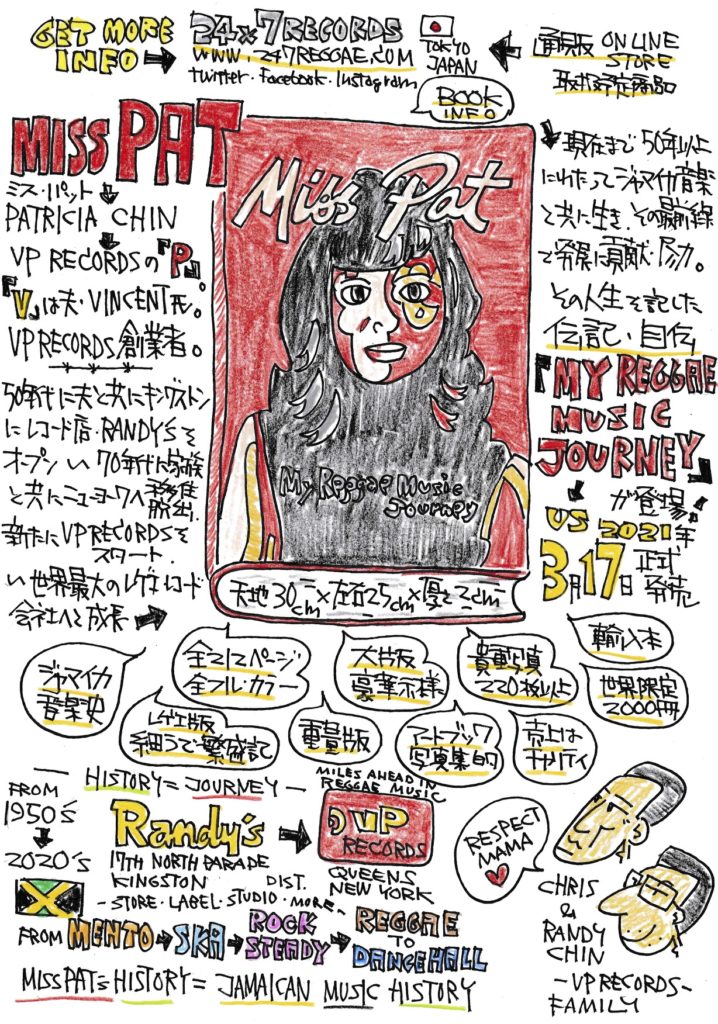 GET MORE INFO →
24x7 RECORDS
WWW.247REGGAE.COM
twitter・Facebook・Instagram
TOKYO
JAPAN
← 通販 ONLINE
STORE
取扱予定商品
BOOK
INFO
MISS PAT
ミス・パット ↓
PATRICIA CHIN
↓
VP RECORDSの『P』
『V』は夫・VINCENT氏。
VP RECORDS 創業者。
50年代に夫と共にキングストン
にレコード店・RANDY'Sを
オープン い 70年代に家族
と共にニューヨークへ移住
脱出.
新たにVP RECORDSを
スタート.
い 世界最大のレゲエ・レコード
会社へと成長 →
Miss Pat
My Reggae Music
Journey
天地30cm×左右25cm×厚さ2cm
↓現在まで50年以上
にわたってジャマイカ音楽
と共に生き、その最前線
で発展に貢献・尽力。
その人生を記した
伝記・自伝
『MY REGGAE
MUSIC
JOURNEY』
が登場!!
↓
US 2021年
3月17日 正式
発売
ジャマイカ
音楽史
全212ページ
全フルカラー
大判版
豪華仕様
貴重写真
220枚以上
輸入本
世界限定
2000冊
レゲエ版
細うで繁盛記
重量版
アートブック
写真集的
売上は
チャリティ
— HISTORY = JOURNEY —
FROM
1950's
↓
2020's
Randy's →
17TH NORTH PARADE
KINGSTON
DIST.
-STORE・LABEL・STUDIO・MORE-
MILES AHEAD IN
REGGAE MUSIC
VP
RECORDS
QUEENS
NEW YORK
RESPECT
MAMA
FROM MENTO → SKA → ROCK STEADY → REGGAE TO DANCEHALL
MISS PAT's HISTORY = JAMAICAN MUSIC HISTORY
CHRIS
&
RANDY
CHIN
-VP RECORDS-
FAMILY